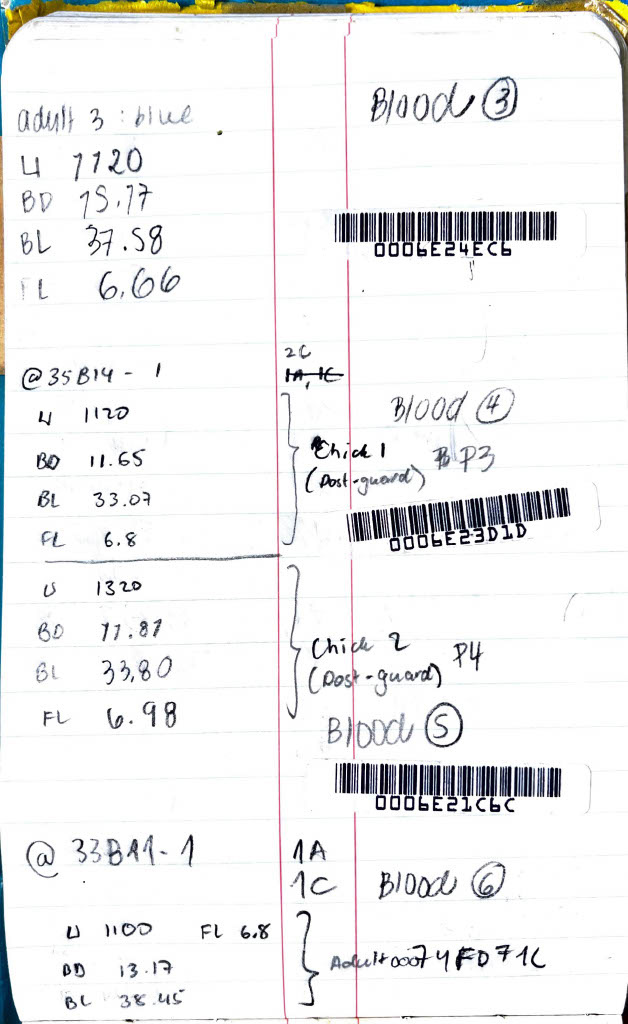 adult 3 : blue
Blood ③
W 1120
BD 15.17
BL 37.58
0006E24EC6
FL 6.66
2C
@35B14 - 1 1A, 1C
W 1120
Blood ④
BD 11.65
Chick 1
P3
BL 33.07
(Post-guard)
FL 6.8
0006E23D1D
W 1320
BD 11.87
Chick 2
P4
BL 33,80
(Post-guard)
FL 6.98
Blood ⑤
0006E21C6C
@ 33B11-1 1A
1C Blood ⑥
W 1100 FL 6.8
BD 13.17
Adult 00074FD71C
BL 38.45